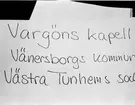 Vargöns kapell
Vänersborgs kommun
Västra Tunhems